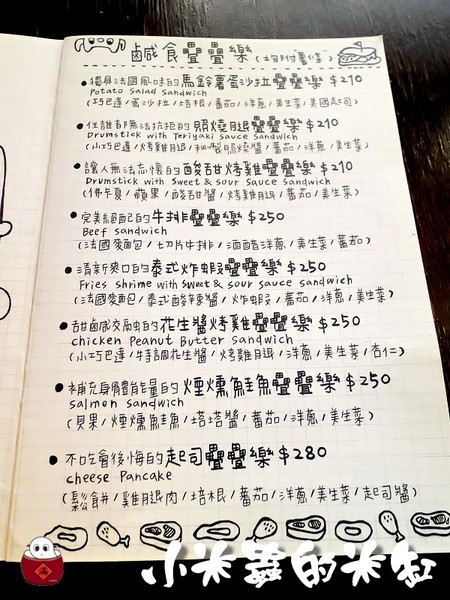 鹹食疊疊樂(均附"薯條")
獨屬法國風味的馬鈴薯蛋沙拉疊疊樂$210
Potato Salad Sandwich
(巧巴達/蛋沙拉/培根/蕃茄/洋蔥/美生菜/美國起司)
任誰都無法抗拒的照燒腿疊疊樂$210
Drumstick with Teriyaki Sauce Sandwich
(小巧巴達/烤雞腿/秘製照燒醬/蕃茄/洋蔥/美生菜)
讓人無法忘懷的酸甜烤雞疊疊樂$210
Drumstick with Sweet & sour Sauce Sandwich
(佛卡夏/蘋果/酸甜醬/烤雞腿/蕃茄/洋蔥/美生菜)
完美絕配的牛排疊疊樂$250
Beef Sandwich
(法國麥麵包/切片牛排/洒醋洋蔥/美生菜/蕃茄)
清新爽口的泰式炸蝦疊疊樂$250
Fries shrime with Sweet & Sour sauce sandwich
(法國麥麵包/泰式酸辣醬/炸蝦/蕃茄/洋蔥/美生菜)
甜鹹交融的花生醬烤雞疊疊樂$250
chicken Peanut Butter Sandwich
(小巧巴達/特調花生醬/烤雞腿/洋蔥/美生菜/杏仁)
補充身體能量的煙燻鮭魚疊疊樂$250
salmon Sandwich
(貝果/煙燻鮭魚/塔塔醬/蕃茄/洋蔥/美生菜)
不吃會後悔的起司疊疊樂$280
cheese Pancake
(鬆餅/雞腿肉/培根/蕃茄/洋蔥/美生菜/起司醬)
小米蟲的米缸